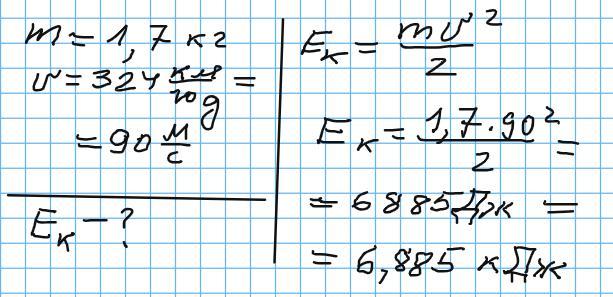 m = 1,7 кг
v = 324 км/год =
= 90 м/с
Eк - ?
Eк = mv²/2
Eк = 1,7·90²/2 =
= 6885 Дж =
= 6,885 кДж